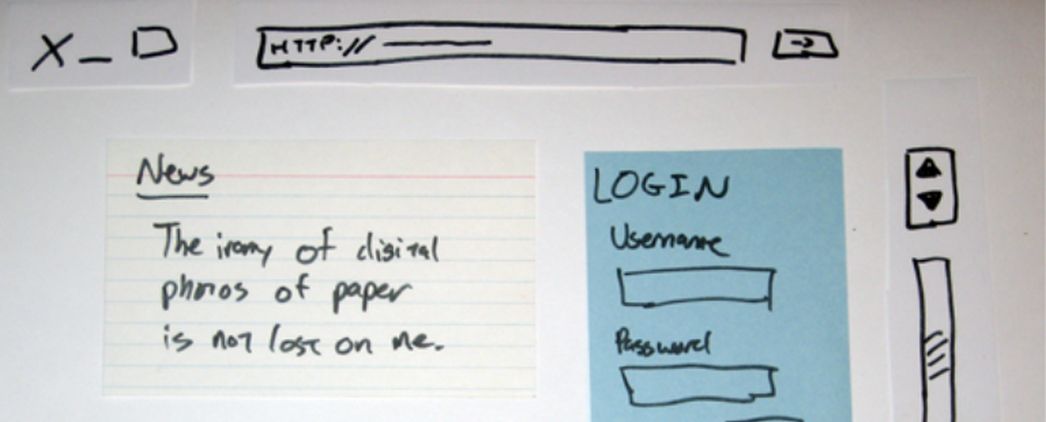 X _ □
HTTP://
News
The irony of digital
photos of paper
is not lost on me.
LOGIN
Username
Password